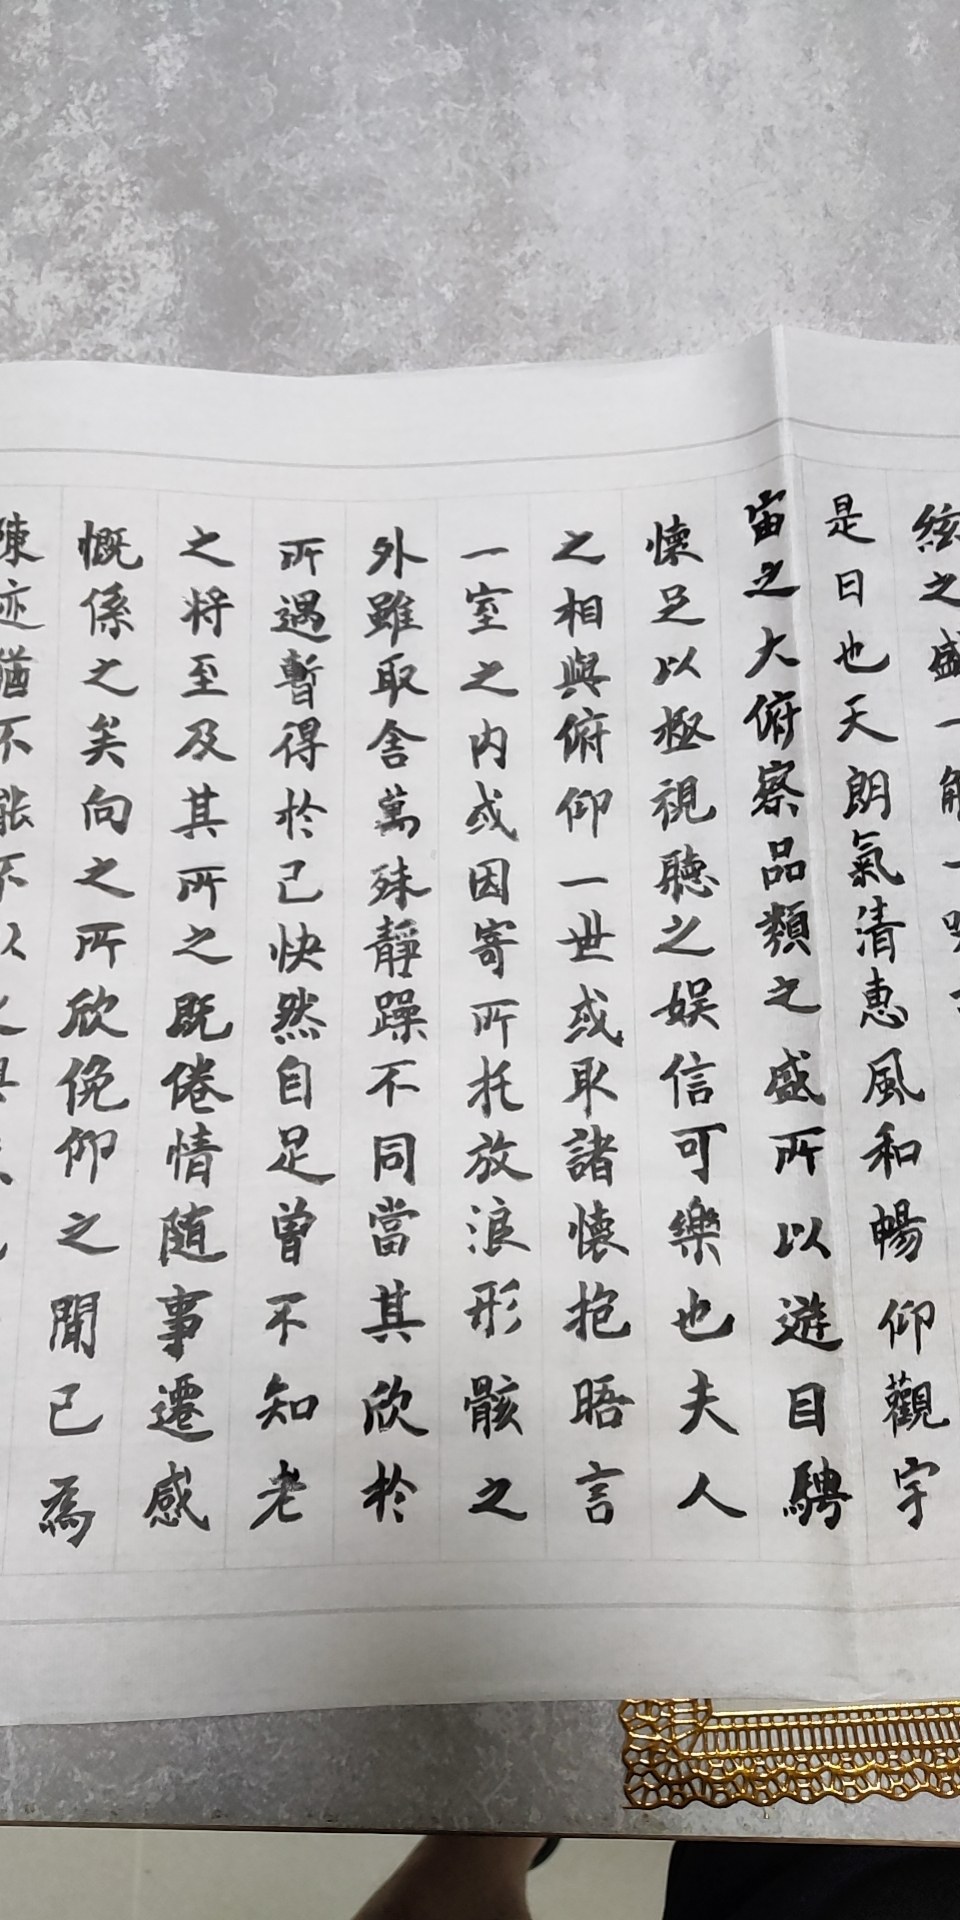 絃之盛一觴一詠
是日也天朗氣清惠風和暢仰觀宇
宙之大俯察品類之盛所以遊目騁
懷足以極視聽之娱信可樂也夫人
之相與俯仰一世或取諸懷抱晤言
一室之内或因寄所托放浪形骸之
外雖取舍萬殊靜躁不同當其欣於
所遇暫得於己快然自足曾不知老
之将至及其所之既倦情随事遷感
慨係之矣向之所欣俛仰之閒已為
陳迹猶不能不以之興